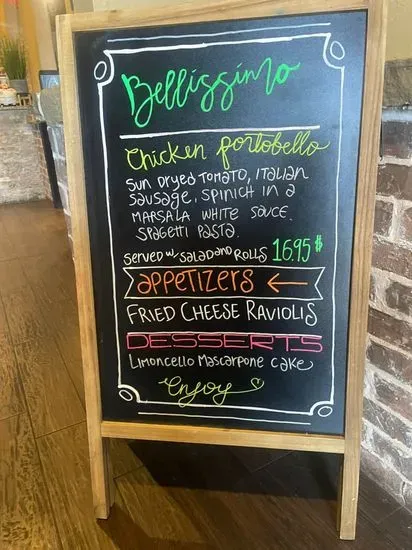 Bellissimo
Chicken portobello
Sun Dryed Tomato, Italian
Sausage, Spinich in a
Marsala white Sauce.
Spagetti Pasta.
Served w/ Salad and Rolls 16.95 $
Appetizers ←
Fried Cheese Raviolis
Desserts
Limoncello Mascarpone Cake
Enjoy